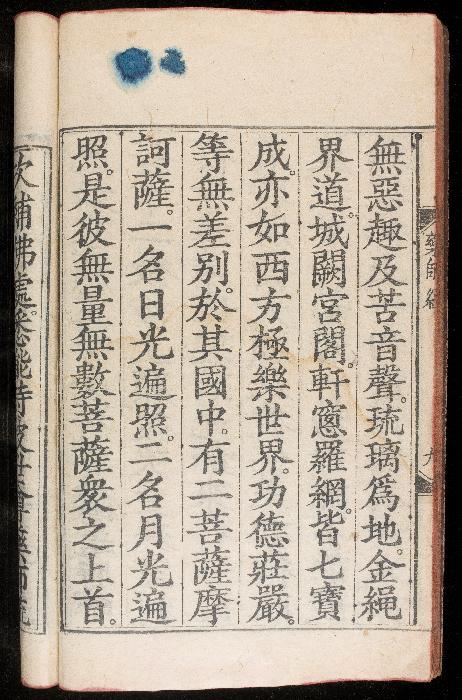 藥師經
九
無惡趣及苦音聲。琉璃爲地。金繩
界道。城闕宮閣。軒窻羅網。皆七寶
成。亦如西方極樂世界。功德莊嚴。
等無差别。於其國中。有二菩薩摩
訶薩。一名日光遍照。二名月光遍
照。是彼無量無數菩薩衆之上首。
次補佛處。悉能持